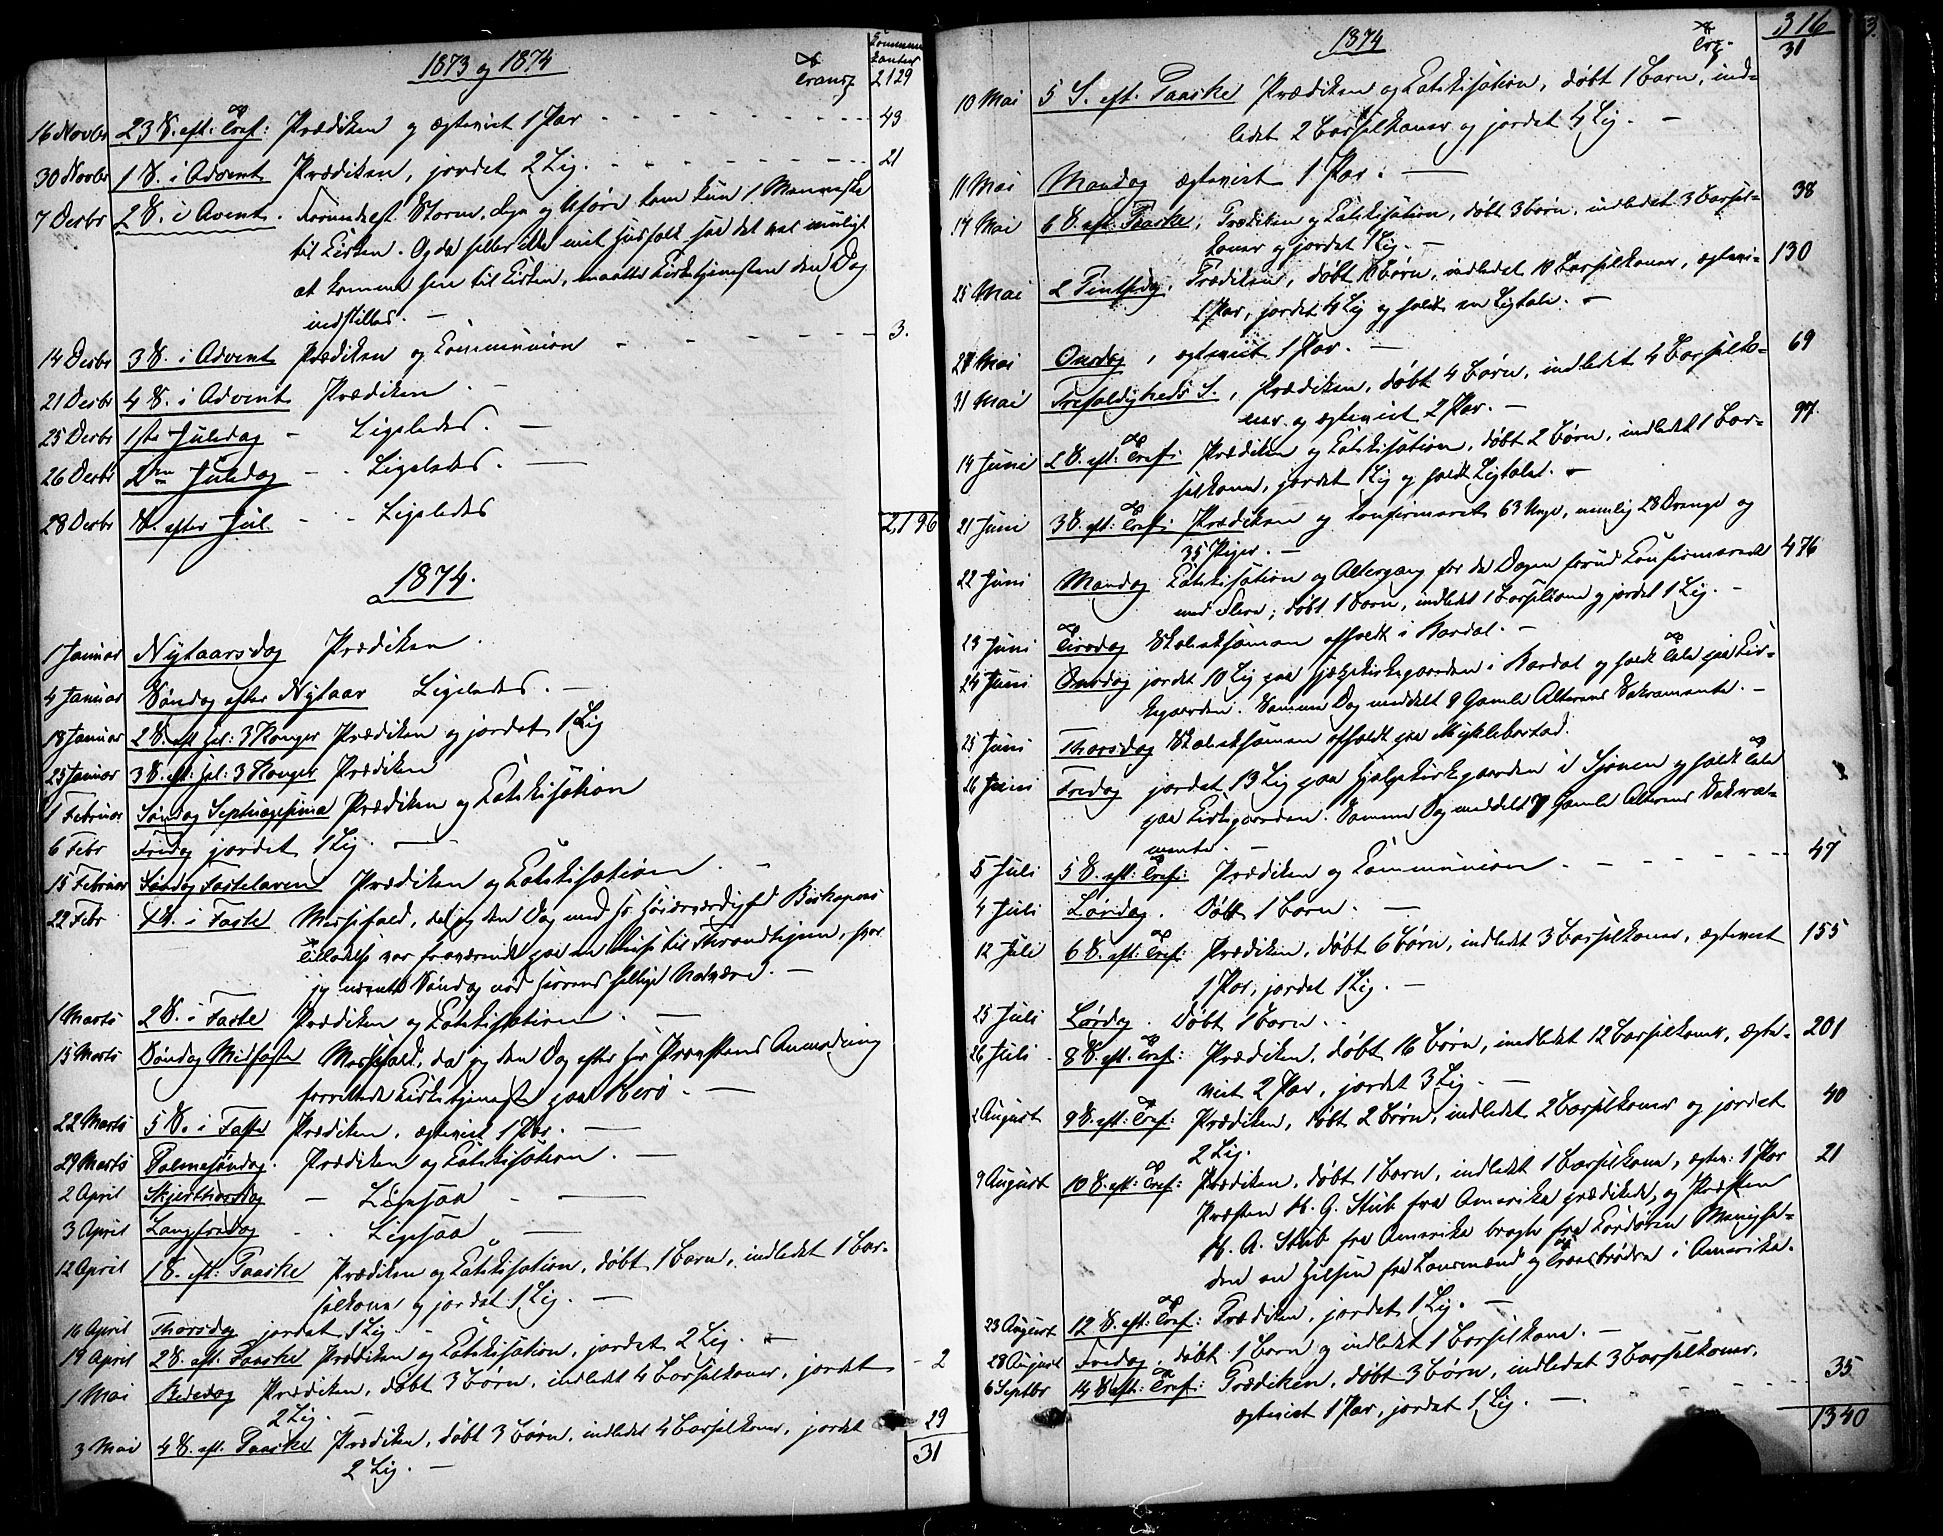 1873 og 1874
Transp
2129
16 Novbr 23 S. eft. Tref: Prædiken og ægteviet 1 Par - - - 43
30 Novbr 1 S. i Advent Prædiken, jordet 2 Lig. - - - 21
7 Decbr 2 S. i Avent. Formedelst Storm, og Uføre kom kun 1 Menneske
til Kirken. Og da heller ikke mit Huusfolk saa det var muligt
at komme hen til Kirken, maatte Kirketjenesten den Dag
indstilles. -
14 Decbr 3 S. i Advent Prædiken og Communion - - - 3.
21 Decbr 4 S. i Advent Prædiken. -
25 Decbr 1ste Juledag - Ligeledes. -
26 Decbr 2den Juledag - - Ligeledes. -
28 Decbr S. efter Jul. - - Ligeledes
2,196
1874.
1 Januar Nytaarsdag Prædiken.
4 Januar Søndag efter Nytaar Ligeledes. -
18 Januar 2 S. eft hel: 3 Konger Prædiken og jordet 1 Lig
25 Januar 3 S. eft: hel: 3 Konger Prædiken
1 Februar Søndag Septuagesima Prædiken og Katekisation
6 Febr Fredag jordet 1 Lig. -
15 Februar Søndag Fastelaven Prædiken og Katekisation. -
22 Febr 1 S. i Faste Messefald, da jeg den Dag med Hr. Høiærværdighed Biskopens
Tilladelse var fraværende paa en Reise til Throndhjem, hvor
jeg nævnte Søndag nød Herrens hellige Nadvere. -
1 Marts 2 S. i Faste Prædiken og Katekisation. -
15 Marts Søndag Midfaste Messefald, da jeg den Dag efter Hr Provstens Anmodning
forrettede Kirketjeneste paa Herø. -
22 Marts 5 S. i Faste Prædiken, ægteviet 1 Par. -
29 Marts Palmesøndag. Prædiken og Katekisation. -
2 April Skjærthorsdag - Ligesaa - -
3 April Langfredag - - Ligesaa -
12 April 1 S. eft: Paaske Prædiken og Katekisation, døbt 1 Barn, indledet 1 Bar-
selkone og jordet 1 Lig. -
16 April Thorsdag jordet 1 Lig. -
19 April 2 S. eft. Paaske Prædiken og Katekisation, jordet 2 Lig. -
1 Mai Bededag Prædiken, døbt 3 Børn, indledet 4 Barselkoner, jordet - 2
2 Lig. -
3 Mai 4 S. eft. Paaske Prædiken, døbt 3 Børn, indledet 4 Barselkoner, jordet 29
2 Lig. -
31
1874
316
Trsp. 31
10 Mai 5 S. eft. Paaske Prædiken og Katekisation, døbt 1 Barn, ind-
ledet 2 Barselkoner og jordet 4 Lig. -
11 Mai Mandag ægteviet 1 Par. -
14 Mai 6 S. eft. Paaske, Prædiken og Katekisation, døbt 3 Børn, indledet 3 Barsel- 38
koner og jordet 1 Lig. -
25 Mai 2 Pintsedag, Prædiken, døbt 10 Børn, indledet 10 Barselkoner, ægtevi- 130
1 Par, jordet 4 Lig og holdt en Ligtale. -
Mai Onsdag, ægteviet 1 Par. -
31 Mai Trefoldigheds S., Prædiken, døbt 4 Børn, indledet 4 Barselko- 69
ner og ægteviet 2 Par. -
14 Juni 2 S. eft. Tref: Prædiken og Katekisation, døbt 2 Børn, indledet 1 Bar- 97
selkone, jordet 1 Lig og holdt Ligtale. -
21 Juni 3 S. eft: Tref: Prædiken og konfirmeret 63 Unge, nemlig 28 Drenge og
35 Piger. -
22 Juni Mandag Katekisation og Altergang for de Dagen forud Konfirmerede 476
med Flere; døbt 1 Barn, indledet 1 Barselkone og jordet 1 Lig. -
23 Juni Tirsdag Skoleeksamen afholdt i Bardal. -
24 Juni Onsdag jordet 10 Lig paa Hjælpekirkegaarden i Bardal og holdt Tale paa Kir-
kegaarden. Samme Dag meddelt 9 Gamle Alterens Sakramente. -
25 Juni Thorsdag Skoleeksamen afholdt paa Myklebostad.
26 Juni Fredag jordet 13 Lig paa Hjælpekirkegaarden i Sjonen og holdt Tale
paa Kirkegaarden. Samme Dag meddelt 7 Gamle Alterens Sakra-
mente. -
5 Juli 5 S. eft: Tref: Prædiken og Communion. - - - 47
4 Juli Lørdag. Døbt 1 Barn. -
12 Juli 6 S. eft: Tref: Prædiken, døbt 6 Børn, indledet 3 Barselkoner, ægteviet 155
1 Par, jordet 1 Lig. -
25 Juli Lørdag. Døbt 1 Barn. -
26 Juli 8 S. eft. Tref: Prædiken, døbt 16 Børn, indledet 12 Barselkoner, ægte- 201
viet 2 Par, jordet 3 Lig. -
2 August 9 S. eft: Tref: Prædiken, døbt 2 Børn, indledet 2 Barselkoner og jordet 40
2 Lig.
9 August 10 S. eft: Tref: Prædiken, døbt 1 Barn, indledet 1 Barselkone, ægtev: 1 Par 21
Præsten H. G. Stub fra Amerika prædikede, og Præsten
H. A. Stub fra Amerika bragte fra Kordøren Menighe-
den en Hilsen fra Landsmænd og Troesbrødre i Amerika.
23 August 12 S. eft: Tref: Prædiken, jordet 1 Lig. -
28 August Fredag, døbt 1 Barn og indledet 1 Barselkone. -
6 Septbr 14 S. eft: Tref: Prædiken, døbt 3 Børn, indledet 3 Barselkoner, 35
ægteviet 1 Par, jordet 1 Lig. - - -
1340